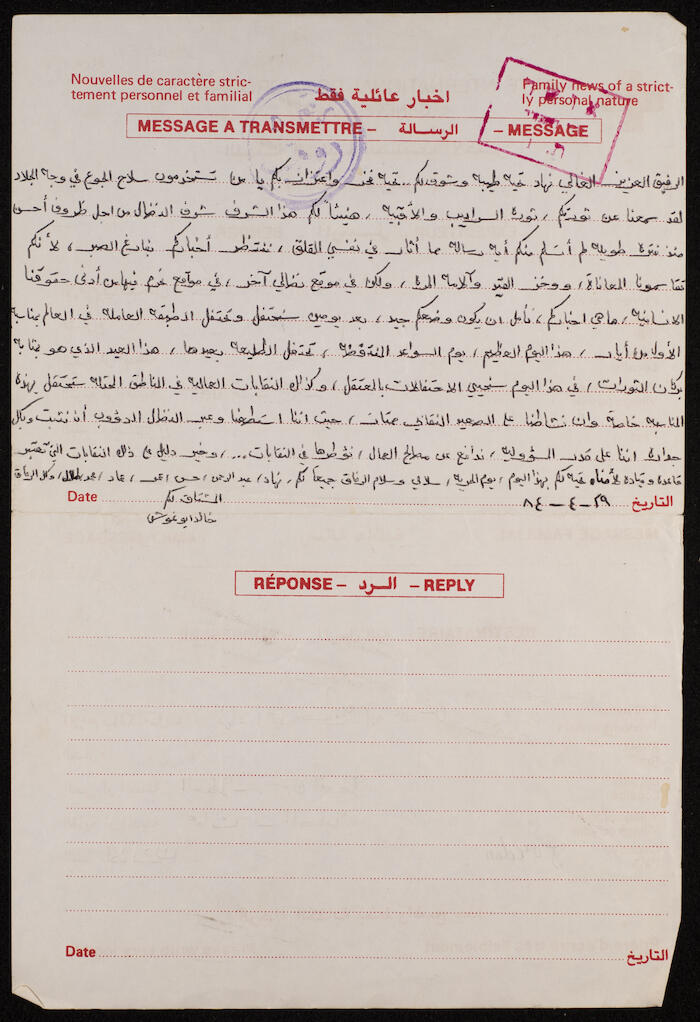 Nouvelles de caractère stric-
tement personnel et familial
اخبار عائلية فقط
Family news of a strict-
ly personal nature
MESSAGE A TRANSMETTRE – الرسالة – MESSAGE
الرفيق العزيز الغالي نهاد تحية طيبة وشوق لكم .. تحية فخر واعتزاز بكم يا من تستخدمون سلاح الجوع في وجه الجلاد
لقد سمعنا عن ثورتكم ، ثورة السراديب والأقبية ، هنيئاً لكم هذا الشرف شرف النضال من اجل ظروف أحسن
منذ فترة طويلة لم أتسلم منكم أية رسالة مما أثار في نفسي القلق ، ننتظر أخباركم بفارغ الصبر ، لأنكم
تقاسمونا المعاناة ، ووخز القيد وآلامه المرة ، ولكن في موقع نضالي آخر ، في مواقع نحرم فيها من أدنى حقوقنا
الانسانية ، ما هي اخباركم ، نأمل ان يكون وضعكم جيد ، بعد يومين سنحتفل وتحتفل الطبقة العاملة في العالم بمناسبة
الأول من أيار ، هذا اليوم العظيم ، يوم السواعد المتوقدة ، تحتفل الطليعة بعيدها ، هذا العيد الذي هو بمثابة
بركان الثورات ، في هذا اليوم سنحيي الاحتفالات بالمعتقل ، وكذلك النقابات العمالية في المناطق المحتلة ستحتفل بهذه
المناسبة خاصة وان نشاطنا على الصعيد النقابي ممتاز ، حيث اننا استطعنا وعبر النضال الدؤوب أن نثبت وبكل
جدارة اننا على قدر المسؤولية ، ندافع عن مصالح العمال ، نؤطرها في النقابات ... ، وخير دليل على ذلك النقابات التي تعتبر
قاعدة وقيادة لأمناء تحية لكم بهذا اليوم ، يوم الحرية ، سلامي وسلام الرفاق جميعاً لكم ، نهاد / عبد الرحمن / حسن / عماد / وكل الرفاق
Date المشتاق لكم ٢٩-٤-٨٤ التاريخ
خالد ابو غوش
RÉPONSE – الرد – REPLY
Date التاريخ